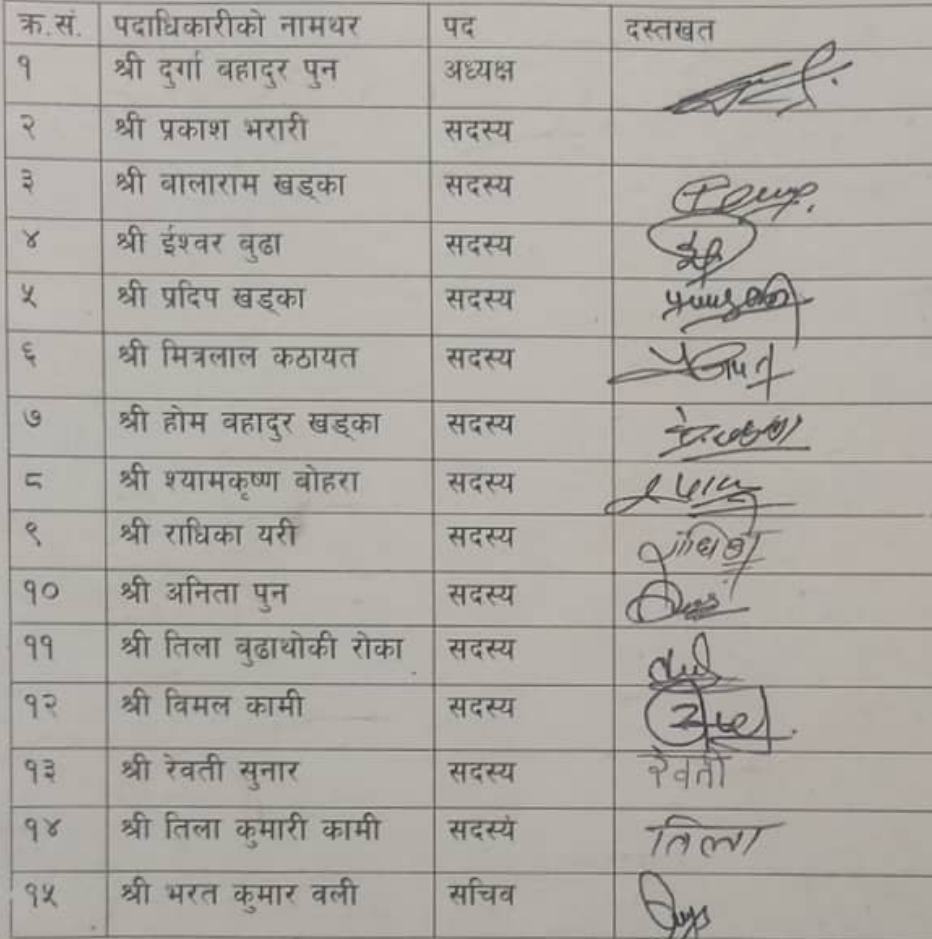 क्र.सं. पदाधिकारीको नामथर पद दस्तखत
१ श्री दुर्गा वहादुर पुन अध्यक्ष
२ श्री प्रकाश भरारी सदस्य
३ श्री वालाराम खड्का सदस्य
४ श्री ईश्वर वुढा सदस्य
५ श्री प्रदिप खड्का सदस्य
६ श्री मित्रलाल कठायत सदस्य
७ श्री होम वहादुर खड्का सदस्य
८ श्री श्यामकृष्ण वोहरा सदस्य
९ श्री राधिका यरी सदस्य
१० श्री अनिता पुन सदस्य
११ श्री तिला वुढाथोकी रोका सदस्य
१२ श्री विमल कामी सदस्य
१३ श्री रेवती सुनार सदस्य रेवती
१४ श्री तिला कुमारी कामी सदस्य तिला
१५ श्री भरत कुमार वली सचिव